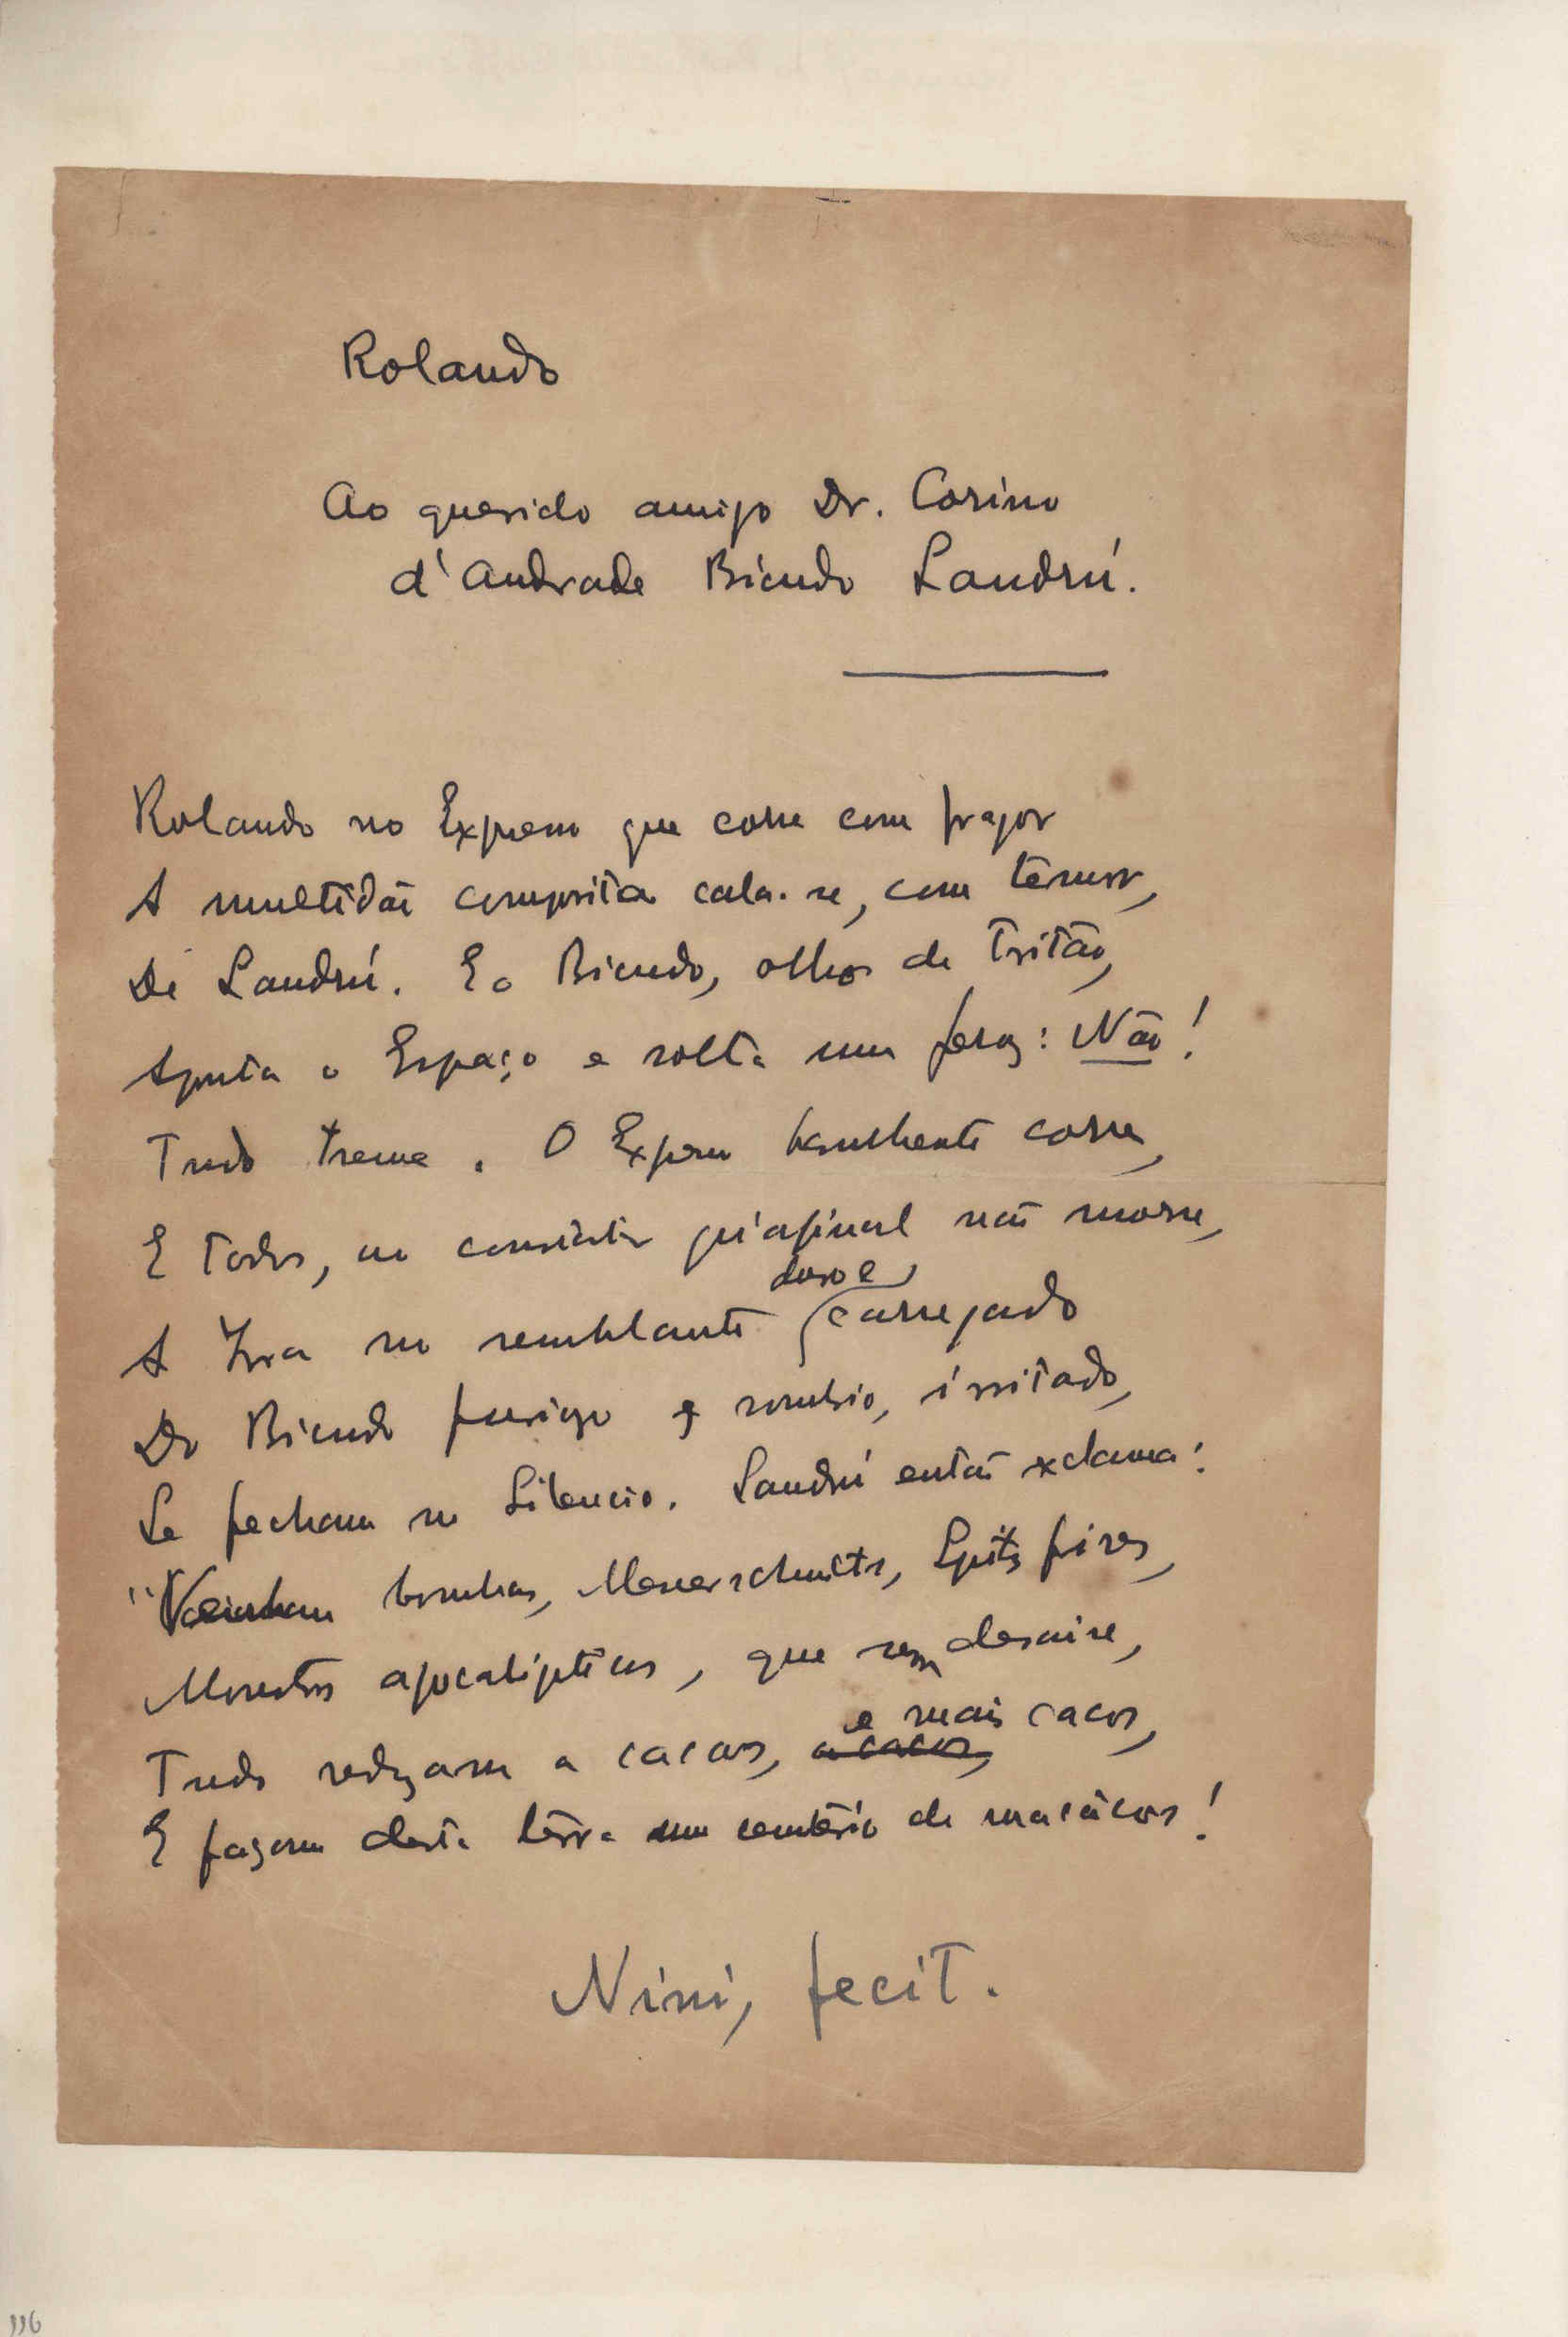 Rolando
Ao querido amigo Dr. Corino
d'Andrade Bicudo Landrú.
Rolando no Expresso que corre com fragor
A multidão compósita cala-se, com temor,
De Landrú. E o Bicudo, olhos de Tritão,
Aponta o Espaço e solta um feroz: Não!
Tudo treme. O Expresso barulhento corre,
E todos, ao constatar qu'afinal não morre,
duro e
A Ira no semblante carregado
Do Bicudo furioso e sombrio, irritado,
Se fecham no Silencio. Landrú então exclama:
"Venham bombas, Messerschmitts, Spitzfires,
Monstros apocalipticos, que sem desaire,
e mais cacos,
Tudo reduzam a cacos, a cacos,
E façam desta terra um cemitério de macácos!
Nini, fecit.
116